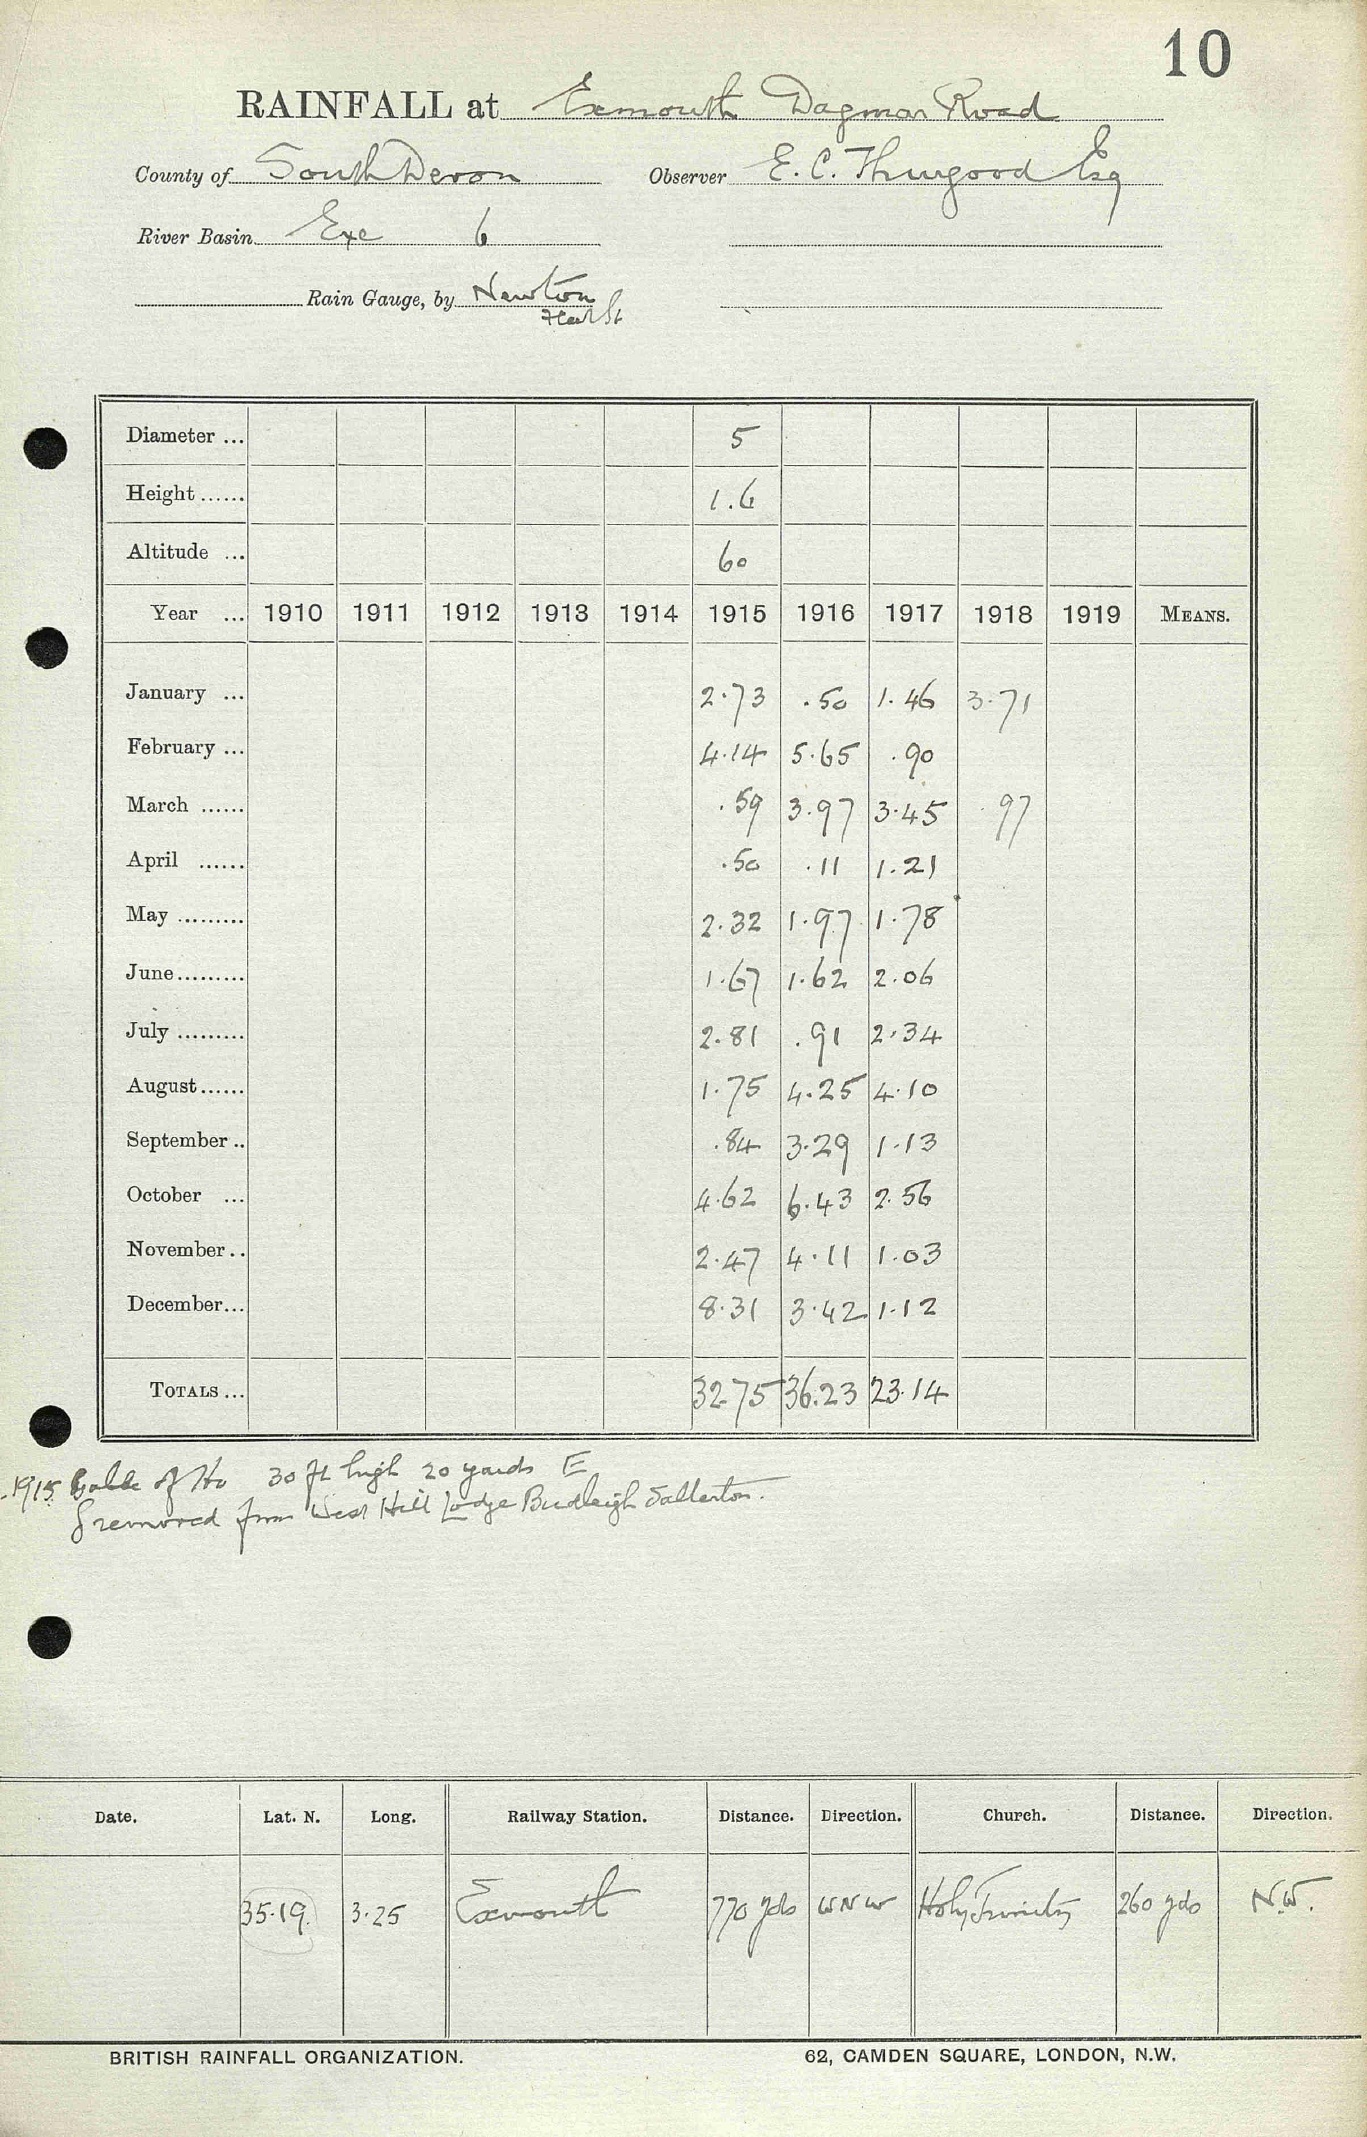 10
RAINFALL at Exmouth Dagmar Road
County of South Devon Observer E. C. Thurgood Esq
River Basin Exe 6
Rain Gauge, by Newton
Fleet St
Diameter ... 5
Height ...... 1.6
Altitude ... 60
Year ... 1910 1911 1912 1913 1914 1915 1916 1917 1918 1919 MEANS.
January ... 2.73 .50 1.46 3.71
February ... 4.14 5.65 .90
March ...... .59 3.97 3.45 .97
April ...... .50 .11 1.21
May ......... 2.32 1.97 1.78
June ......... 1.67 1.62 2.06
July ......... 2.81 .91 2.34
August ...... 1.75 4.25 4.10
September .. .84 3.29 1.13
October ... 4.62 6.43 2.56
November .. 2.47 4.11 1.03
December ... 8.31 3.42 1.12
TOTALS ... 32.75 36.23 23.14
1915 Gable of Ho 30 ft high 20 yards E
removed from West Hill Lodge Budleigh Salterton.
Date. Lat. N. Long. Railway Station. Distance. Direction. Church. Distance. Direction.
35.19. 3.25 Exmouth 770 yds WNW Holy Trinity 260 yds N.W.
BRITISH RAINFALL ORGANIZATION. 62, CAMDEN SQUARE, LONDON, N.W.